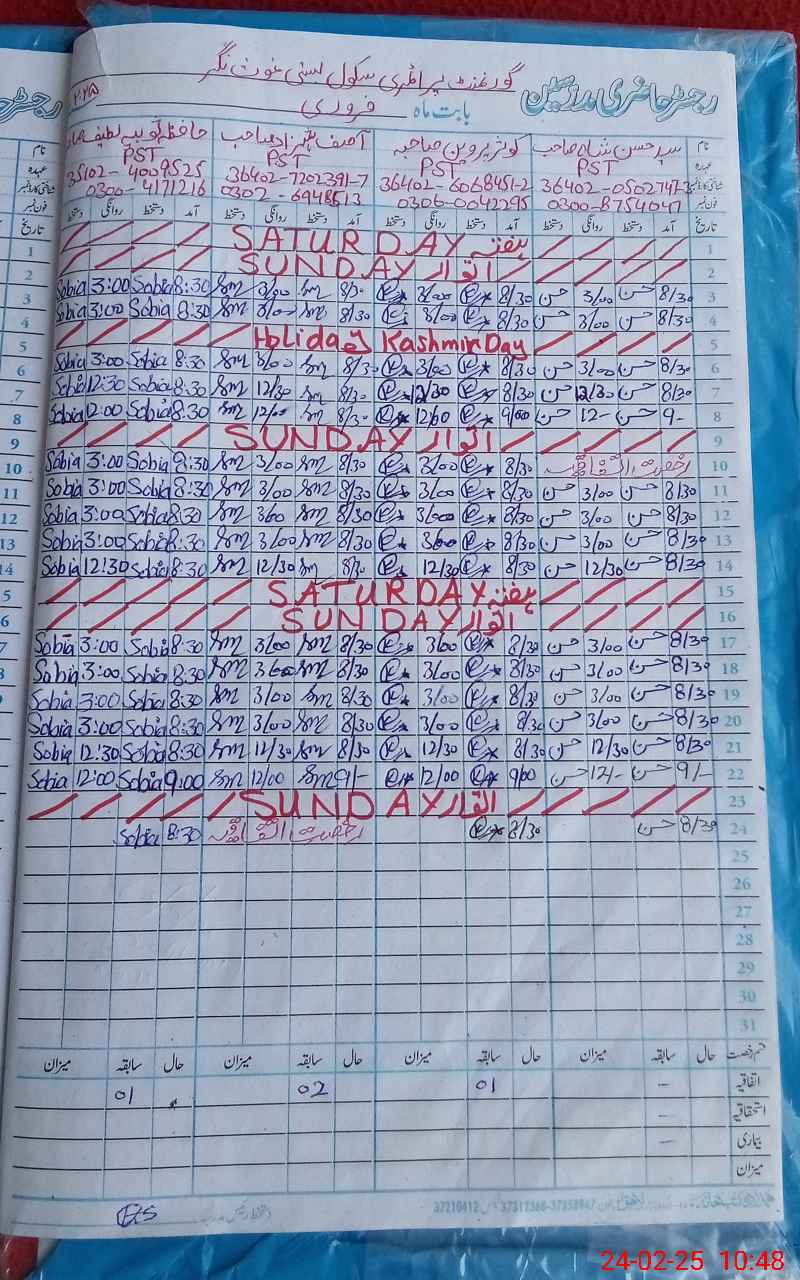 گورنمنٹ پرائمری سکول بستی غوث نگر
رجسٹر حاضری مدرسین بابت ماہ فروری ۲۰۲۵
نام سید حسن شاہ صاحب کوثر پروین صاحبہ آصف شہزاد صاحب حافظہ ثوبیہ لطیف
عہدہ PST PST PST PST
شناختی کارڈ نمبر 36402-0502747-3 36402-6068451-2 36402-7202391-7 35102-4009525
فون نمبر 0300-8754047 0306-0042295 0302-6948513 0300-4171216
تاریخ آمد دستخط روانگی دستخط آمد دستخط روانگی دستخط آمد دستخط روانگی دستخط آمد دستخط روانگی دستخط
1 ہفتہ SATURDAY
2 اتوار SUNDAY
3 8/30 حسن 3/00 حسن 8/30 3/00 8/30 Sm 3/00 Sm 8:30 Sobia 3:00 Sobia
4 8/30 حسن 3/00 حسن 8/30 3/00 8/30 Sm 3/00 Sm 8:30 Sobia 3:00 Sobia
5 Holiday Kashmir Day
6 8/30 حسن 3/00 حسن 8/30 3/00 8/30 Sm 3/00 Sm 8:30 Sobia 3:00 Sobia
7 8/30 حسن 12/30 حسن 8/30 12/30 8/30 Sm 12/30 Sm 8:30 Sobia 12:30 Sobia
8 9- حسن 12- حسن 9/00 12/00 8/30 Sm 12/00 Sm 8:30 Sobia 12:00 Sobia
9 اتوار SUNDAY
10 رخصت اتفاقیہ 8/30 3/00 8/30 Sm 3/00 Sm 8:30 Sobia 3:00 Sobia
11 8/30 حسن 3/00 حسن 8/30 3/00 8/30 Sm 3/00 Sm 8:30 Sobia 3:00 Sobia
12 8/30 حسن 3/00 حسن 8/30 3/00 8/30 Sm 3/00 Sm 8:30 Sobia 3:00 Sobia
13 8/30 حسن 3/00 حسن 8/30 3/00 8/30 Sm 3/00 Sm 8:30 Sobia 3:00 Sobia
14 8/30 حسن 12/30 حسن 8/30 12/30 8/30 Sm 12/30 Sm 8:30 Sobia 12:30 Sobia
15 ہفتہ SATURDAY
16 اتوار SUNDAY
17 8/30 حسن 3/00 حسن 8/30 3/00 8/30 Sm 3/00 Sm 8:30 Sobia 3:00 Sobia
18 8/30 حسن 3/00 حسن 8/30 3/00 8/30 Sm 3/00 Sm 8:30 Sobia 3:00 Sobia
19 8/30 حسن 3/00 حسن 8/30 3/00 8/30 Sm 3/00 Sm 8:30 Sobia 3:00 Sobia
20 8/30 حسن 3/00 حسن 8/30 3/00 8/30 Sm 3/00 Sm 8:30 Sobia 3:00 Sobia
21 8/30 حسن 12/30 حسن 8/30 12/30 8/30 Sm 12/30 Sm 8:30 Sobia 12:30 Sobia
22 9/- حسن 12/- حسن 9/00 12/00 9/- Sm 12/00 Sm 9:00 Sobia 12:00 Sobia
23 اتوار SUNDAY
24 8/30 حسن 8/30 رخصت اتفاقیہ 8:30 Sobia
25
26
27
28
29
30
31
قسم رخصت حال سابقہ میزان حال سابقہ میزان حال سابقہ میزان حال سابقہ میزان
اتفاقیہ - 01 02 01
استحقاقیہ -
بیماری -
میزان
24-02-25 10:48